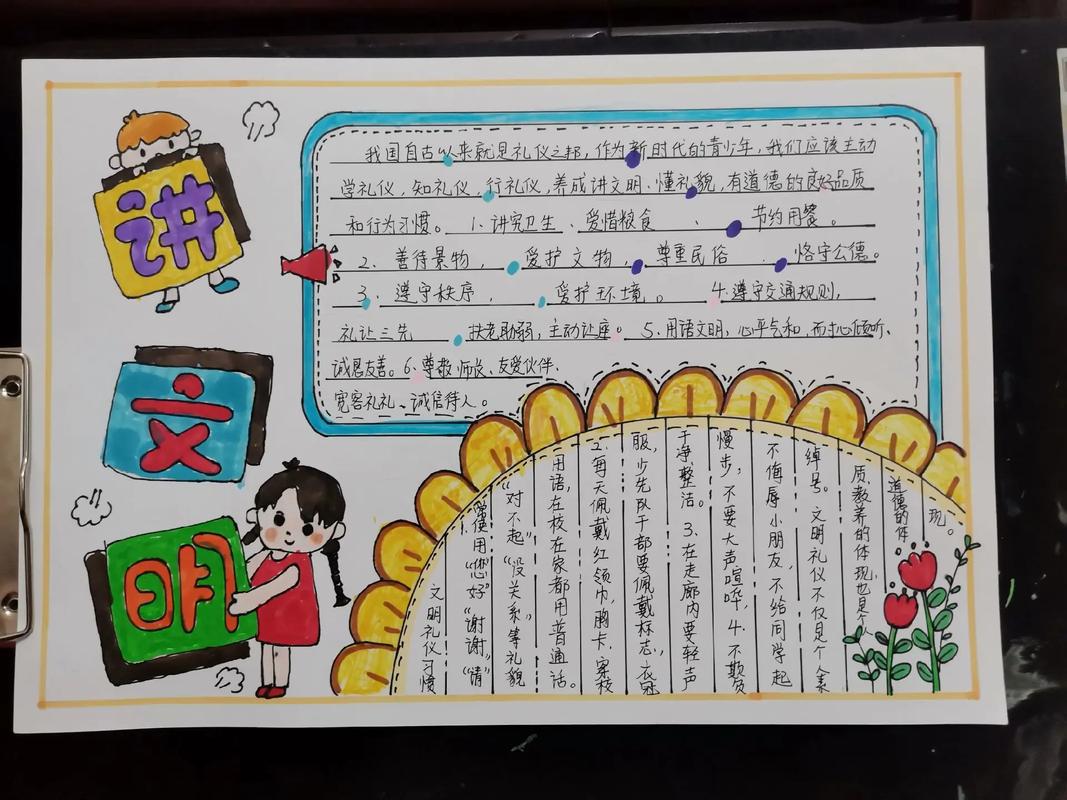 讲
文
明
我国自古以来就是礼仪之邦，作为新时代的青少年，我们应该主动
学礼仪，知礼仪，行礼仪，养成讲文明、懂礼貌，有道德的良好品质
和行为习惯。1、讲究卫生、爱惜粮食、节约用餐。
2、善待景物，爱护文物，尊重民俗、恪守公德。
3、遵守秩序，爱护环境。4、遵守交通规则，
礼让三先、扶老助弱，主动让座。5、用语文明，心平气和，耐心倾听、
诚恳友善。6、尊敬师长、友爱伙伴、
宽客礼礼、诚信待人。
文明礼仪习惯
常使用“您好”“谢谢”“请”
“对不起”“没关系”等礼貌
用语，在校在家都用普通话。
2、每天佩戴红领巾，胸卡、穿校
服，少先队干部要佩戴标志，衣冠
干净整洁。3、在走廊内要轻声
慢步，不要大声喧哗，4、不欺负
不侮辱小朋友，不给同学起
绰号。文明礼仪不仅是个人素
质、教养的体现，也是个人
道德的体
现。